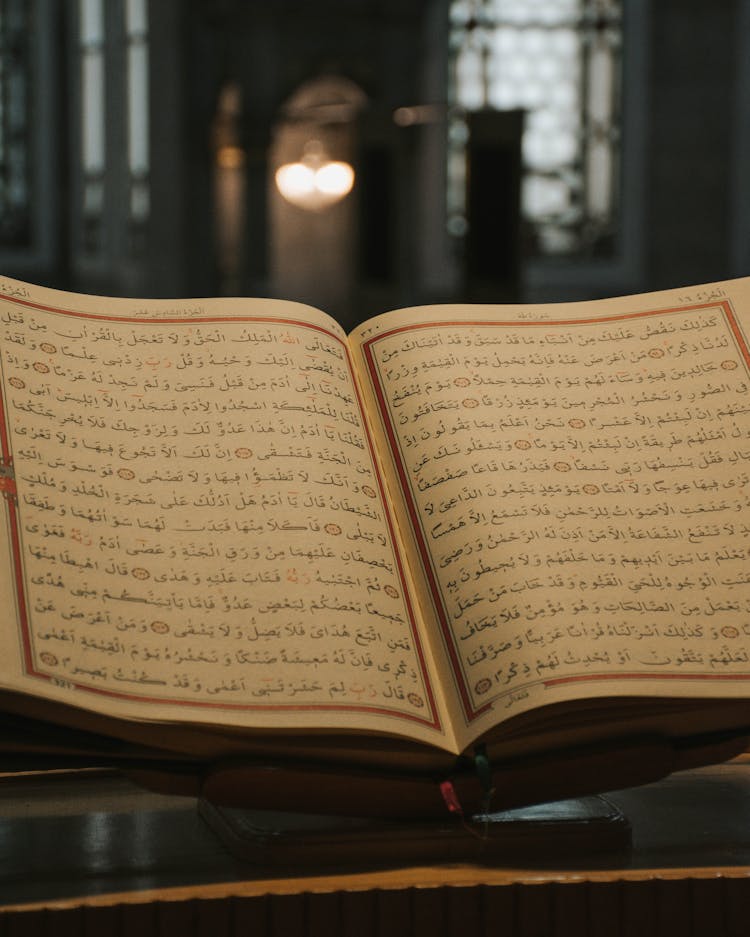 الجزء ١٦
سورة طه
٣٢٠
كَذٰلِكَ نَقُصُّ عَلَيْكَ مِنْ اَنْبَاءِ مَا قَدْ سَبَقَ وَقَدْ اٰتَيْنَاكَ مِنْ
لَدُنَّا ذِكْرًا مَنْ اَعْرَضَ عَنْهُ فَاِنَّهُ يَحْمِلُ يَوْمَ الْقِيٰمَةِ وِزْرًا
خَالِدِينَ فِيهِ وَسَاءَ لَهُمْ يَوْمَ الْقِيٰمَةِ حِمْلًا يَوْمَ يُنْفَخُ
فِي الصُّورِ وَنَحْشُرُ الْمُجْرِمِينَ يَوْمَئِذٍ زُرْقًا يَتَخَافَتُونَ
اِنْ لَبِثْتُمْ اِلَّا عَشْرًا نَحْنُ اَعْلَمُ بِمَا يَقُولُونَ اِذْ
اَمْثَلُهُمْ طَرِيقَةً اِنْ لَبِثْتُمْ اِلَّا يَوْمًا وَيَسْـَٔلُونَكَ عَنِ
فَقُلْ يَنْسِفُهَا رَبِّي نَسْفًا فَيَذَرُهَا قَاعًا صَفْصَفًا
تَرٰى فِيهَا عِوَجًا وَلَا اَمْتًا يَوْمَئِذٍ يَتَّبِعُونَ الدَّاعِيَ لَا
وَخَشَعَتِ الْاَصْوَاتُ لِلرَّحْمٰنِ فَلَا تَسْمَعُ اِلَّا هَمْسًا
لَا تَنْفَعُ الشَّفَاعَةُ اِلَّا مَنْ اَذِنَ لَهُ الرَّحْمٰنُ وَرَضِيَ
يَعْلَمُ مَا بَيْنَ اَيْدِيهِمْ وَمَا خَلْفَهُمْ وَلَا يُحِيطُونَ بِهِ
وَعَنَتِ الْوُجُوهُ لِلْحَيِّ الْقَيُّومِ وَقَدْ خَابَ مَنْ حَمَلَ
يَعْمَلْ مِنَ الصَّالِحَاتِ وَهُوَ مُؤْمِنٌ فَلَا يَخَافُ
وَكَذٰلِكَ اَنْزَلْنَاهُ قُرْاٰنًا عَرَبِيًّا وَصَرَّفْنَا
لَعَلَّهُمْ يَتَّقُونَ اَوْ يُحْدِثُ لَهُمْ ذِكْرًا
فتعالى
الجزء السادس عشر
فَتَعَالَى اللّٰهُ الْمَلِكُ الْحَقُّ وَلَا تَعْجَلْ بِالْقُرْاٰنِ مِنْ قَبْلِ
اَنْ يُقْضٰى اِلَيْكَ وَحْيُهُ وَقُلْ رَبِّ زِدْنِي عِلْمًا وَلَقَدْ
عَهِدْنَا اِلٰى اٰدَمَ مِنْ قَبْلُ فَنَسِيَ وَلَمْ نَجِدْ لَهُ عَزْمًا وَاِذْ
قُلْنَا لِلْمَلٰئِكَةِ اسْجُدُوا لِاٰدَمَ فَسَجَدُوا اِلَّا اِبْلِيسَ اَبٰى
فَقُلْنَا يَا اٰدَمُ اِنَّ هٰذَا عَدُوٌّ لَكَ وَلِزَوْجِكَ فَلَا يُخْرِجَنَّكُمَا
مِنَ الْجَنَّةِ فَتَشْقٰى اِنَّ لَكَ اَلَّا تَجُوعَ فِيهَا وَلَا تَعْرٰى
وَاَنَّكَ لَا تَظْمَؤُا فِيهَا وَلَا تَضْحٰى فَوَسْوَسَ اِلَيْهِ
الشَّيْطَانُ قَالَ يَا اٰدَمُ هَلْ اَدُلُّكَ عَلٰى شَجَرَةِ الْخُلْدِ وَمُلْكٍ
لَا يَبْلٰى فَاَكَلَا مِنْهَا فَبَدَتْ لَهُمَا سَوْاٰتُهُمَا وَطَفِقَا
يَخْصِفَانِ عَلَيْهِمَا مِنْ وَرَقِ الْجَنَّةِ وَعَصٰى اٰدَمُ رَبَّهُ فَغَوٰى
ثُمَّ اجْتَبٰيهُ رَبُّهُ فَتَابَ عَلَيْهِ وَهَدٰى قَالَ اهْبِطَا مِنْهَا
جَمِيعًا بَعْضُكُمْ لِبَعْضٍ عَدُوٌّ فَاِمَّا يَاْتِيَنَّكُمْ مِنِّي هُدًى
فَمَنِ اتَّبَعَ هُدَايَ فَلَا يَضِلُّ وَلَا يَشْقٰى وَمَنْ اَعْرَضَ عَنْ
ذِكْرِي فَاِنَّ لَهُ مَعِيشَةً ضَنْكًا وَنَحْشُرُهُ يَوْمَ الْقِيٰمَةِ اَعْمٰى
قَالَ رَبِّ لِمَ حَشَرْتَنِي اَعْمٰى وَقَدْ كُنْتُ بَصِيرًا
321